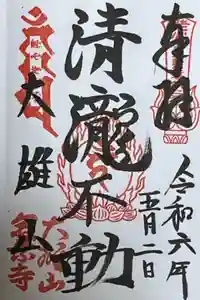 奉拝
令和六年
五月二日
清瀧不動
大雄山